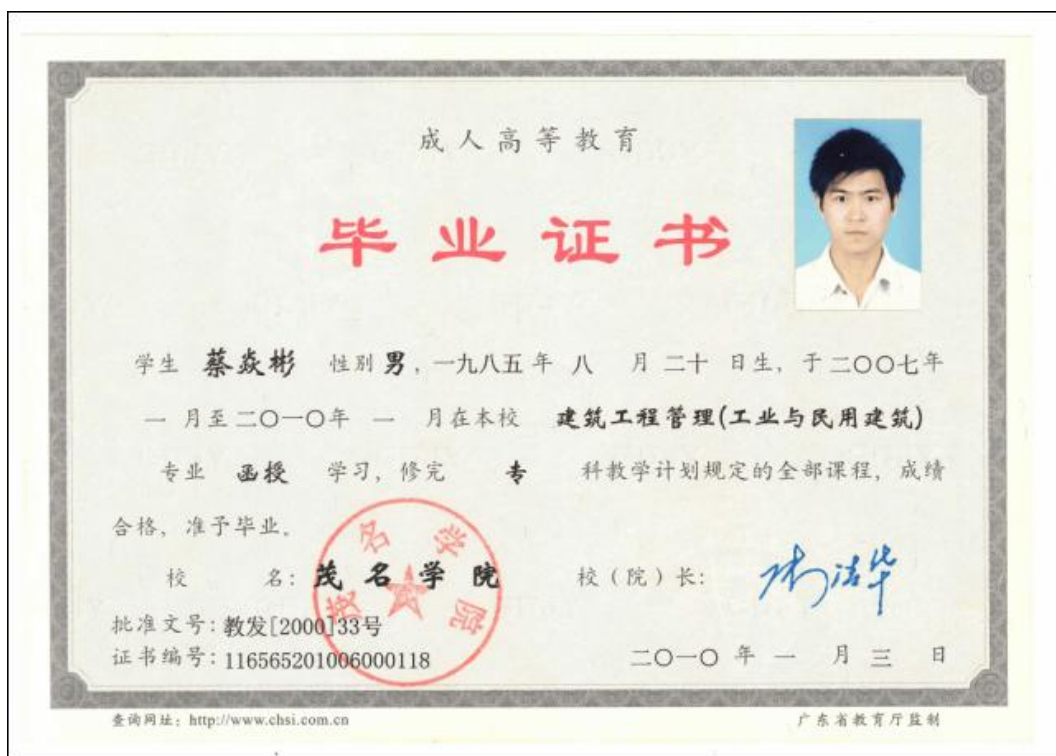 成人高等教育
毕业证书
学生 蔡焱彬 性别 男，一九八五年 八 月 二十 日生，于二〇〇七年
一 月至二〇一〇年 一 月在本校 建筑工程管理(工业与民用建筑)
专业 函授 学习，修完 专 科教学计划规定的全部课程，成绩
合格，准予毕业。
校 名：茂名学院 校（院）长：
茂名学院
批准文号：教发[2000]33号
证书编号：116565201006000118 二〇一〇 年 一 月 三 日
查询网址：http://www.chsi.com.cn 广东省教育厅监制